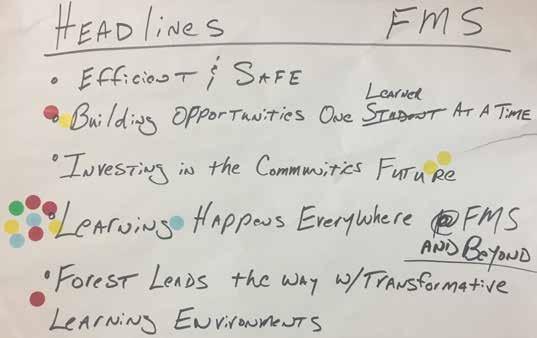 HEADlines FMS
• EfficienT & SAFE
Learner
• Building OPPORTUNITIES One STUDENT AT A TIME
• INVESTING in the Communities FUTURE
• LEARNING HAPPENS EVERYWHERE @ FMS
AND BEYOND
• FOREST LEADS the WAY W/TRANSFormATIVE
LEARNING ENVIRONMENTS